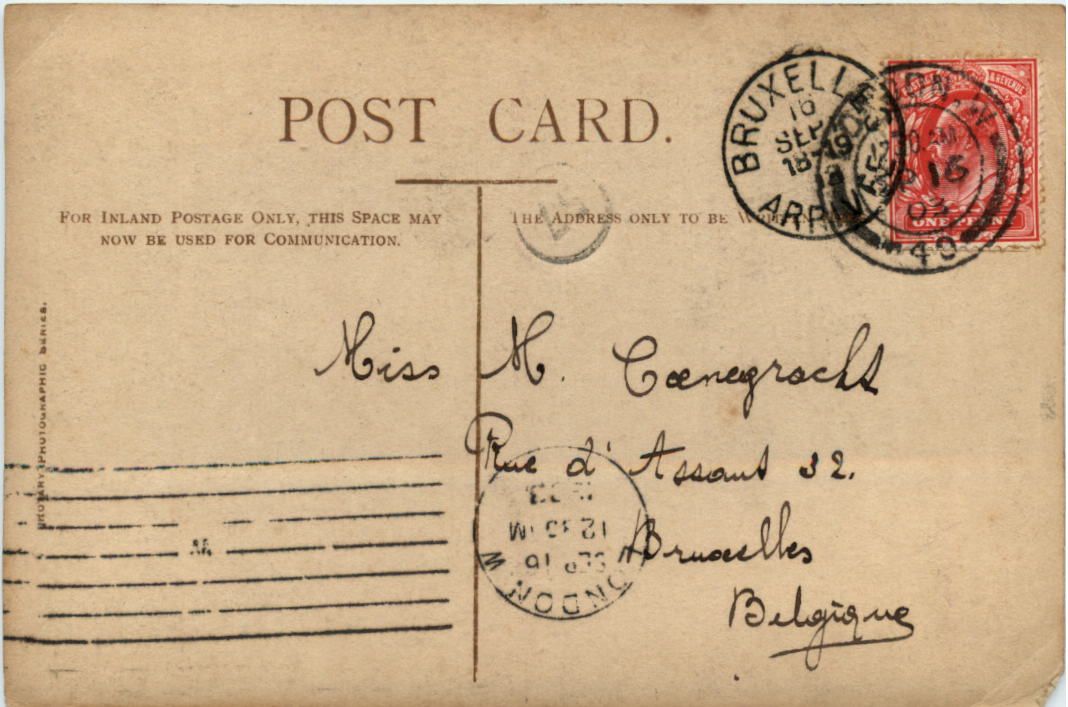 POST CARD.
FOR INLAND POSTAGE ONLY, THIS SPACE MAY
NOW BE USED FOR COMMUNICATION.
THE ADDRESS ONLY TO BE
ROTARY PHOTOGRAPHIC SERIES.
BRUXELLES
16
SEPT
18-19
ARRIVEE
SP 16
03
40
ONE PENNY
& REVENUE
Miss M. Cœnegracht
Rue d'Assaut 32.
Bruxelles
Belgique
LONDON W
SEP 16
12